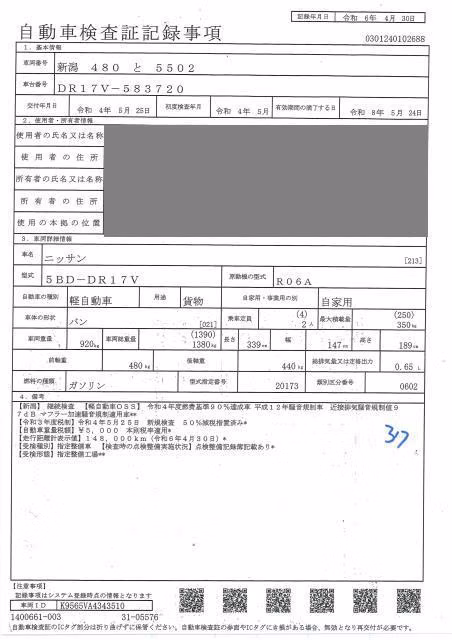 記録年月日 令和 6年 4月 30日
自動車検査証記録事項
0301240102688
1．基本情報
車両番号 新潟 480 と 5502
車台番号 DR17V-583720
交付年月日 令和 4年 5月 25日 初度検査年月 令和 4年 5月 有効期間の満了する日 令和 8年 5月 24日
2．使用者・所有者情報
使用者の氏名又は名称
使用者の住所
所有者の氏名又は名称
所有者の住所
使用の本拠の位置
3．車両詳細情報
車名 ニッサン [213]
型式 5BD-DR17V 原動機の型式 R06A
自動車の種別 軽自動車 用途 貨物 自家用・事業用の別 自家用
車体の形状 バン [021] 乗車定員 (4) 2人 最大積載量 (250) 350kg
車両重量 920kg 車両総重量 (1390) 1380kg 長さ 339cm 幅 147cm 高さ 189cm
前軸重 480kg 後軸重 440kg 総排気量又は定格出力 0.65 L
燃料の種類 ガソリン 型式指定番号 20173 類別区分番号 0602
4．備考
【新潟】 継続検査 【軽自動車OSS】 令和4年度燃費基準90%達成車 平成12年騒音規制車 近接排気騒音規制値9
7dB マフラー加速騒音規制適用車**
【令和3年度税制】令和4年5月25日 新規検査 50%減税措置済み*
【自動車重量税額】¥5,000 本則税率適用*
【走行距離計表示値】148,000km（令和6年4月30日）*
【受検種別】指定整備車 【検査時の点検整備実施状況】点検整備記録簿記載あり*
【受検形態】指定整備工場**
317
【注意事項】
記録事項はシステム登録時点の情報となります
車両ID K9565VA4343510
1400661-003 31-05576
自動車検査証のICタグ部分は折り曲げずに保管ください。自動車検査証の券面やICタグにき損がある場合、無効となり再交付が必要です。